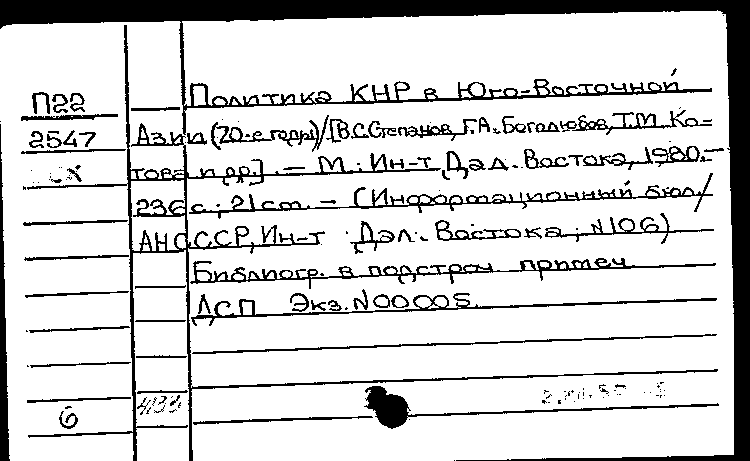 П22 Политика КНР в Юго-Восточной
2547 Азии (70-е годы)/[В.С.Степанов, Г.А. Боголюбов, Т.М. Ко-
това и др.]. – М.: Ин-т Дал. Востока, 1980. –
236 с.; 21 см. – (Информационный бюл./
АН СССР, Ин-т Дал. Востока; N106)
Библиогр. в подстроч примеч
ДСП Экз. N00005.
6 4133